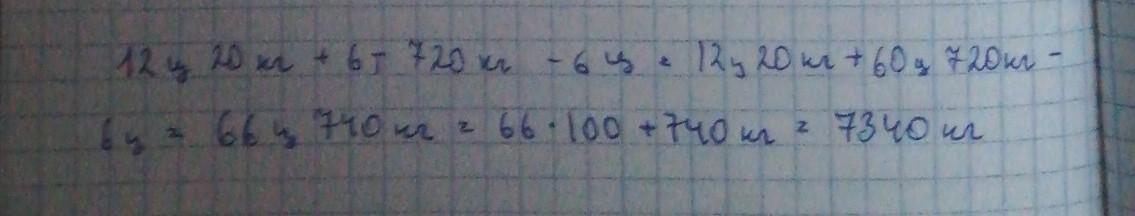 12 ц 20 кг + 6т 720 кг - 6 ц = 12 ц 20 кг + 60 ц 720 кг -
6 ц = 66 ц 740 кг = 66 · 100 + 740 кг = 7340 кг